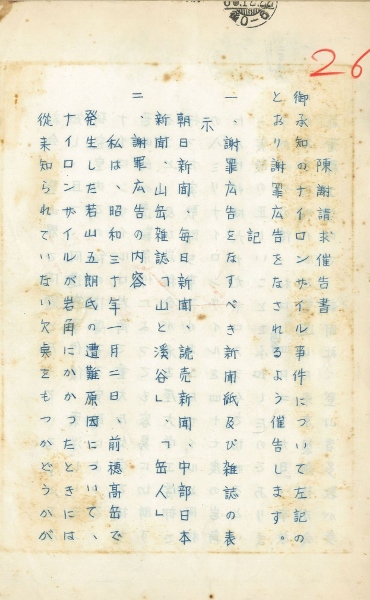 26
陳謝請求催告書
御承知のナイロンザイル事件について左記の
とおり謝罪広告をなされるよう催告します。
記
一、謝罪広告をなすべき新聞紙及び雑誌の表
示
朝日新聞、毎日新聞、読売新聞、中部日本
新聞、山岳雑誌「山と溪谷」、「岳人」
二 謝罪広告の内容
私は、昭和三十年一月二日、前穂高岳で
発生した若山五朗氏の遭難原因について、
ナイロンザイルが岩角にかかつたときには
従来知られていない欠臭をもつかどうかが